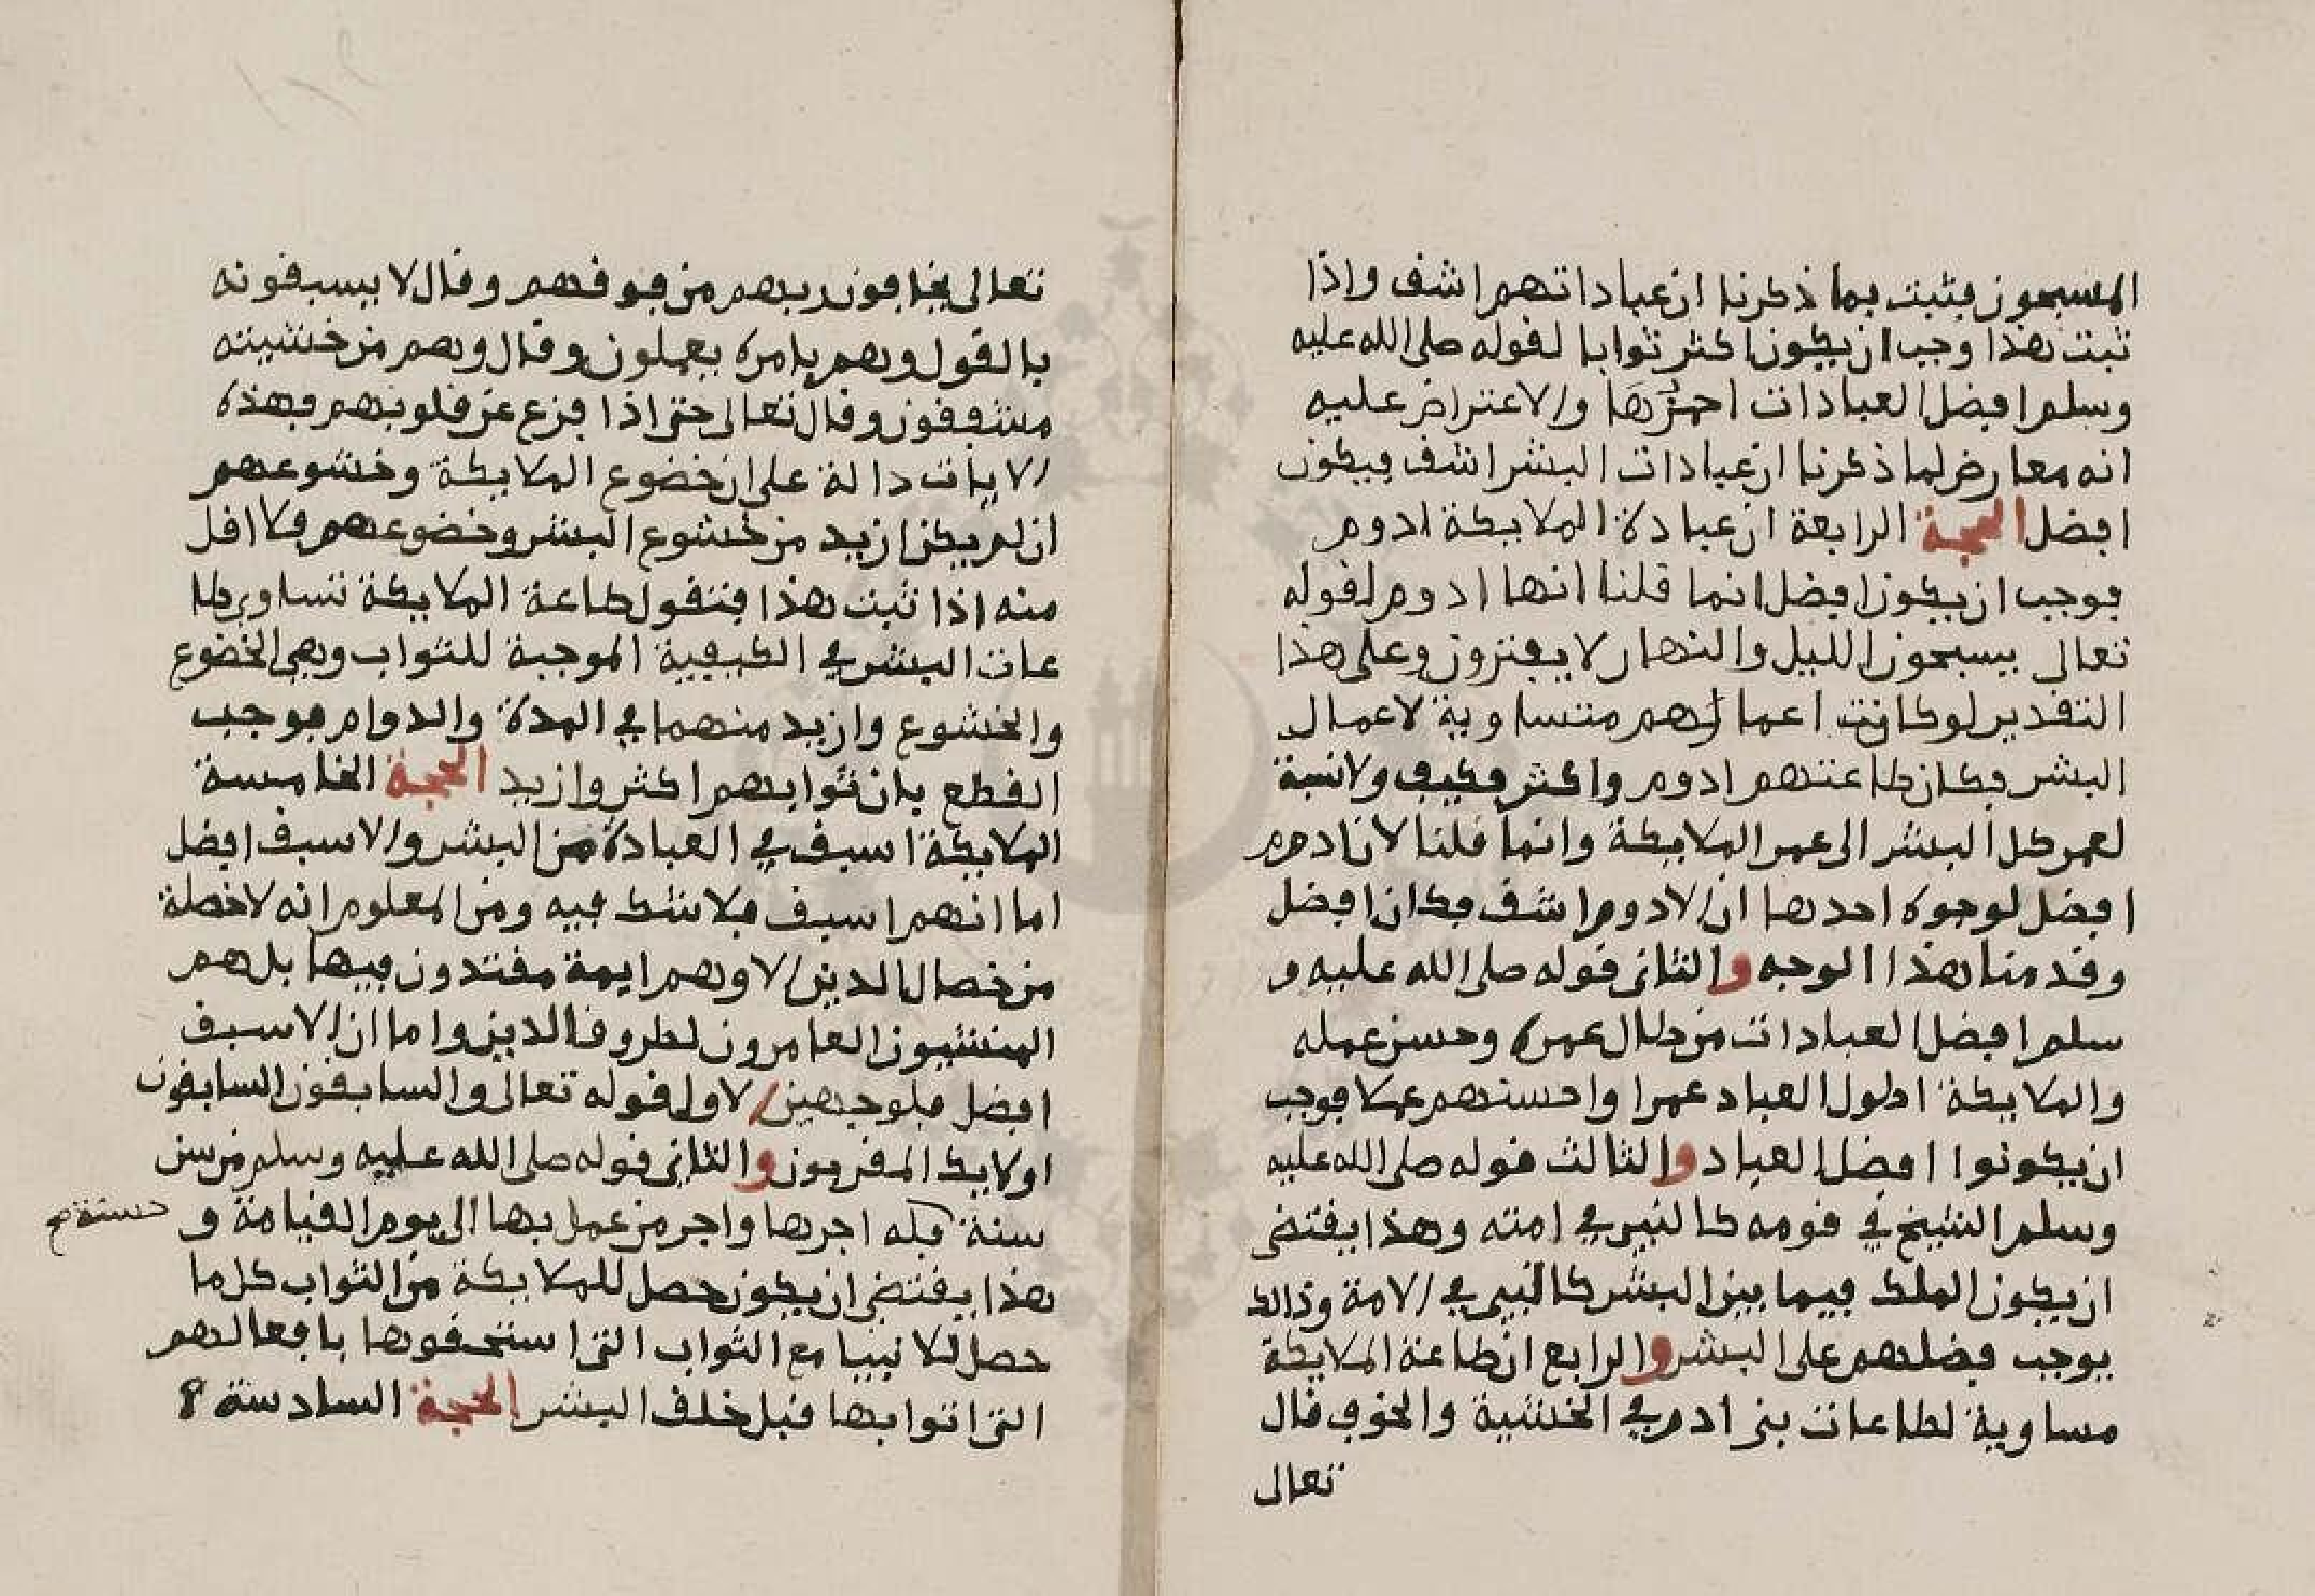 المسبحون فثبت بما ذكرنا ان عباداتهم اشق واذا
ثبت هذا وجب ان يكون اكثر ثوابا لقوله صلى الله عليه
وسلم افضل العبادات احمزها والاعتراض عليه
انه معارض لما ذكرنا ان عبادات البشر اشق فيكون
افضل الحجة الرابعة ان عبادة الملايكة ادوم
فوجب ان يكون افضل انما قلنا انها ادوم لقوله
تعالى يسبحون الليل والنهار لا يفترون وعلى هذا
التقدير لو كانت اعمالهم متساوية لاعمال
البشر فكان طاعتهم ادوم واكثر فكيف ولا نسبة
لعمر كل البشر الى عمر الملايكة وانما قلنا لان ادوم
افضل لوجوه احدها ان الادوم اشق فكان افضل
وقد منا هذا الوجه والثانى قوله صلى الله عليه و
سلم افضل العبادات من طال عمره وحسن عمله
والملايكة اطول العباد عمرا واحسنهم عملا فوجب
ان يكونوا افضل العباد والثالث قوله صلى الله عليه
وسلم الشيخ في قومه كالنبي في امته وهذا يقتضى
ان يكون الملك فيما بين البشر كالنبي في الامة وذالك
يوجب فضلهم على البشر والرابع ان طاعة الملايكة
مساوية لطاعات بنى ادم في الخشية والخوف قال
تعالى
تعالى يخافون ربهم من فوقهم وقال لا يسبقونه
بالقول وهم بامره يعملون وقال وهم من خشيته
مشفقون وقال تعالى حتى اذا فزع عن قلوبهم فهذه
الايات دالة على ان خضوع الملايكة وخشوعهم
ان لم يكن ازيد من خشوع البشر وخضوعهم فلا اقل
منه اذا ثبت هذا فنقول طاعة الملايكة تساوى طا
عات البشر في الكيفية الموجبة للثواب وهى الخضوع
والخشوع وازيد منهما في المدة والدوام فوجب
القطع بان ثوابهم اكثر وازيد الحجة الخامسة
الملايكة اسبق في العبادة من البشر والاسبق افضل
اما انهم اسبق فلا شك فيه ومن المعلوم انه لا خصلة
من خصال الدين الا وهم ايمة مقتدون فيها بل هم
المنشيون العامرون لطروق الدين واما ان الاسبق
افضل فلوجهين الاول قوله تعالى والسابقون السابقون
اوليك المقربون والثانى قوله صلى الله عليه وسلم من سن
سنة فله اجرها واجر من عمل بها الى يوم القيامة و
حسنة صح
هذا يقتضى ان يكون حصل للملايكة من الثواب كل ما
حصل للانبيا مع الثواب التى استحقوها بافعالهم
التى اتوا بها قبل خلق البشر الحجة السادسة